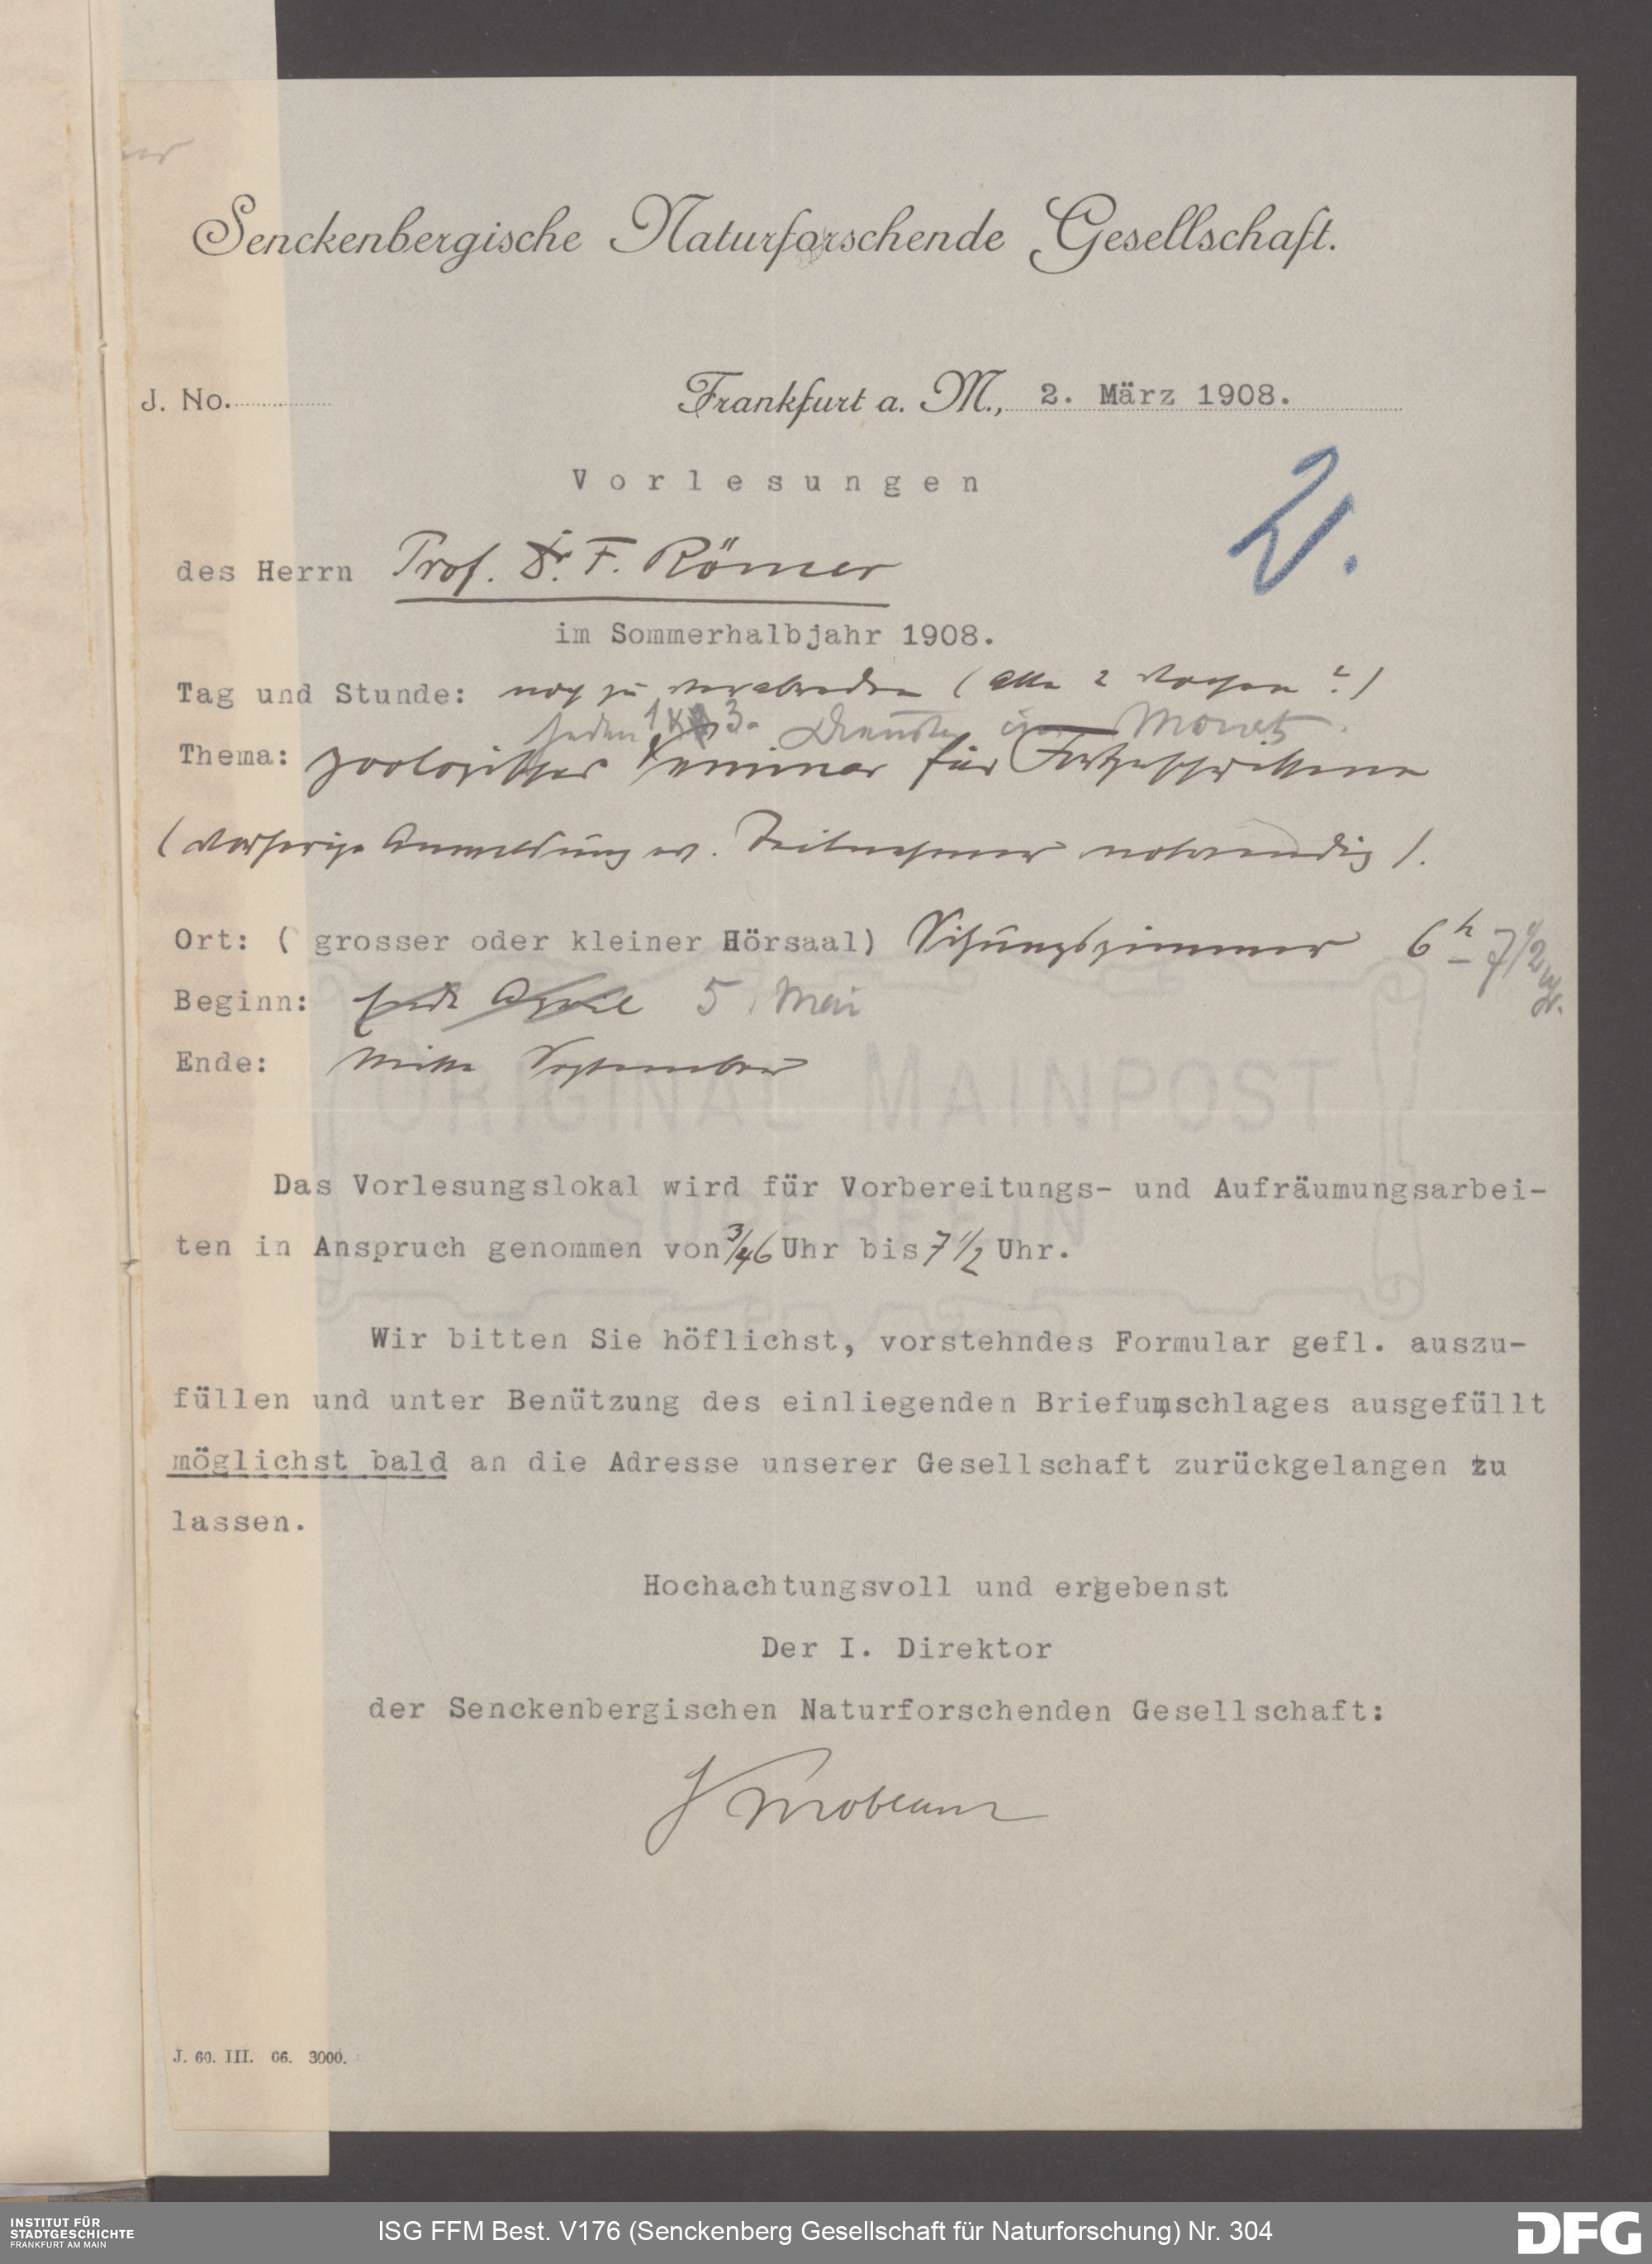 Senckenbergische Naturforschende Gesellschaft.
J. No.
Frankfurt a. M., 2. März 1908.
Vorlesungen
2.
des Herrn Prof. Dr. F. Römer
im Sommerhalbjahr 1908.
Tag und Stunde: noch zu verabreden (alle 2 Wochen?)
jeden 1. 3. Dienstag im Monat.
Thema: zoologisches Seminar für Fortgeschrittene
(vorherige Anmeldung d. Teilnehmer notwendig).
Ort: ( grosser oder kleiner Hörsaal) Sitzungszimmer 6h – 7 1/2 Uhr.
Beginn: Ende April 5. Mai
Ende: Mitte September
ORIGINAL MAINPOST
SUPERFEIN
Das Vorlesungslokal wird für Vorbereitungs- und Aufräumungsarbei-
ten in Anspruch genommen von 3/4 6 Uhr bis 7 1/2 Uhr.
Wir bitten Sie höflichst, vorstehndes Formular gefl. auszu-
füllen und unter Benützung des einliegenden Briefumschlages ausgefüllt
möglichst bald an die Adresse unserer Gesellschaft zurückgelangen zu
lassen.
Hochachtungsvoll und ergebenst
Der I. Direktor
der Senckenbergischen Naturforschenden Gesellschaft:
J. 60. III. 06. 3000.
INSTITUT FÜR
STADTGESCHICHTE
FRANKFURT AM MAIN
ISG FFM Best. V176 (Senckenberg Gesellschaft für Naturforschung) Nr. 304
DFG